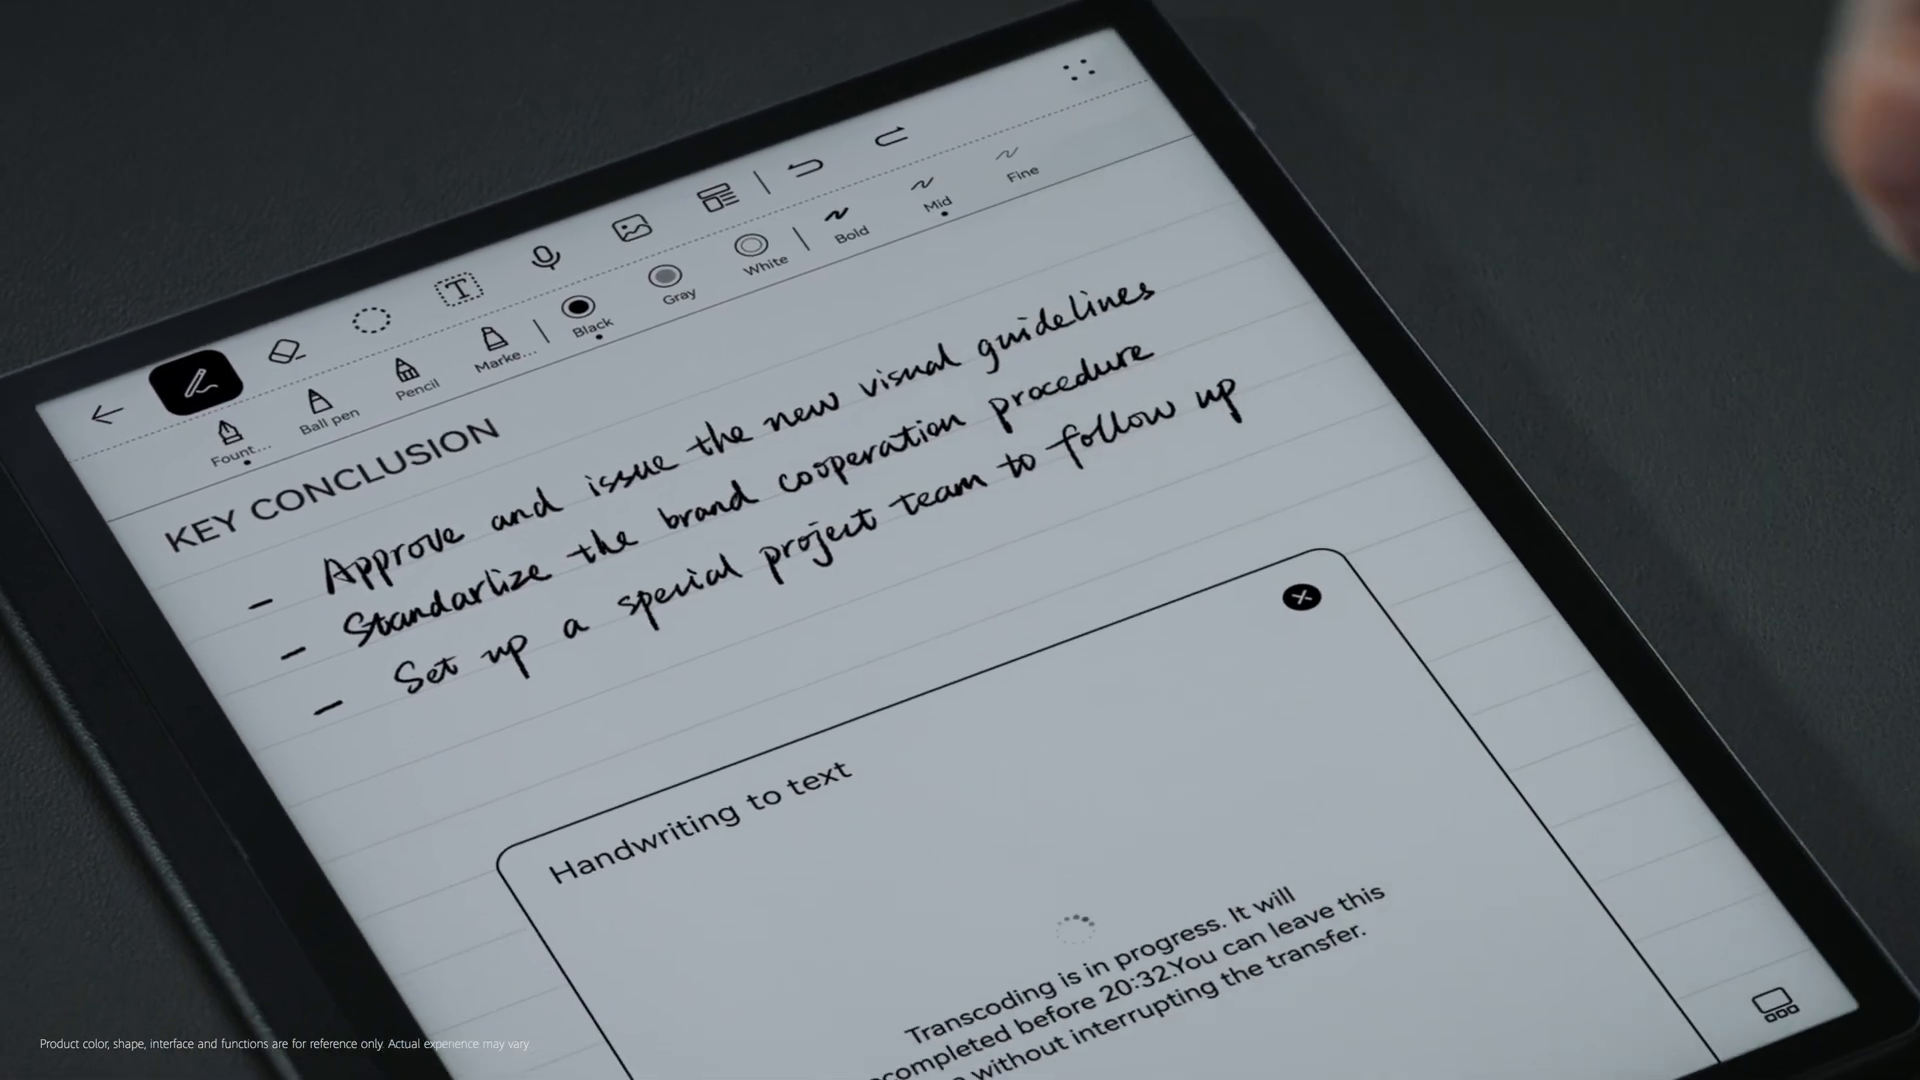 Fount...
Ball pen
Pencil
Marke...
Black
Gray
White
Bold
Mid
Fine
KEY CONCLUSION
- Approve and issue the new visual guidelines
- Standarlize the brand cooperation procedure
- Set up a special project team to follow up
Handwriting to text
Transcoding is in progress. It will
completed before 20:32.You can leave this
without interrupting the transfer.
Product color, shape, interface and functions are for reference only. Actual experience may vary